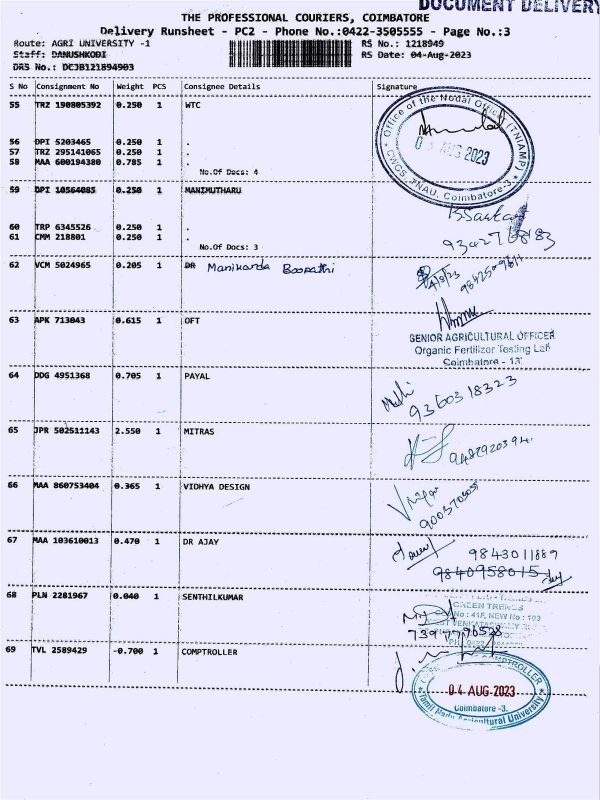 DOCUMENT DELIVERY
THE PROFESSIONAL COURIERS, COIMBATORE
Delivery Runsheet - PC2 - Phone No.:0422-3505555 - Page No.:3
Route: AGRI UNIVERSITY -1 RS No.: 1218949
Staff: DANUSHKODI RS Date: 04-Aug-2023
DRS No.: DCJB121894903
S No Consignment No Weight PCS Consignee Details Signature
55 TRZ 190805392 0.250 1 WTC
Office of the Nodal Officer (TNIAMP)
AUG 2023
CWGS, TNAU, Coimbatore-3.
56 DPI 5203465 0.250 1 .
57 TRZ 295141065 0.250 1 .
58 MAA 600194380 0.785 1 .
No.Of Docs: 4
59 DPI 10564085 0.250 1 MANIMUTHARU
60 TRP 6345526 0.250 1 .
61 CMM 218801 0.250 1 .
No.Of Docs: 3
62 VCM 5024965 0.205 1 DR Manikanda Boopathi
4/8/23
63 APK 713043 0.615 1 OFT
SENIOR AGRICULTURAL OFFICER
Organic Fertilizer Testing Lab
Coimbatore - 13
64 DDG 4951368 0.705 1 PAYAL
9360318323
65 JPR 502511143 2.550 1 MITRAS
66 MAA 860753404 0.365 1 VIDHYA DESIGN
67 MAA 103610013 0.470 1 DR AJAY
9843011889
9840958015
68 PLN 2281967 0.040 1 SENTHILKUMAR
GREEN TRENDS
No : 41F, NEW No : 103
69 TVL 2589429 -0.700 1 COMPTROLLER
COMPTROLLER
04 AUG 2023
Coimbatore -3.
Tamil Nadu Agricultural University